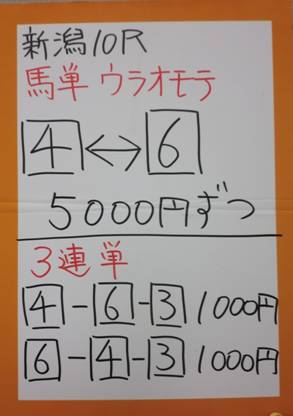 新潟10R
馬単 ウラオモテ
4↔6
5000円ずつ
3連単
4-6-3 1000円
6-4-3 1000円